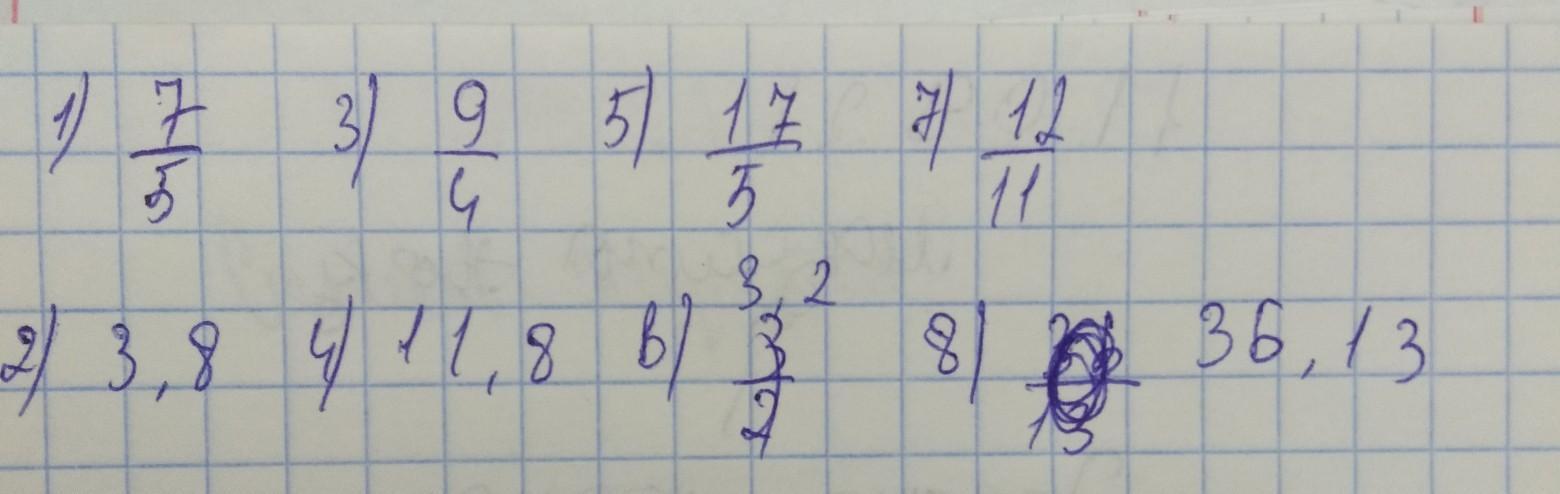 1) 7/5 3) 9/4 5) 17/5 7) 12/11
3,2
2) 3,8 4) 11,8 6) 3/2 8) 36,13